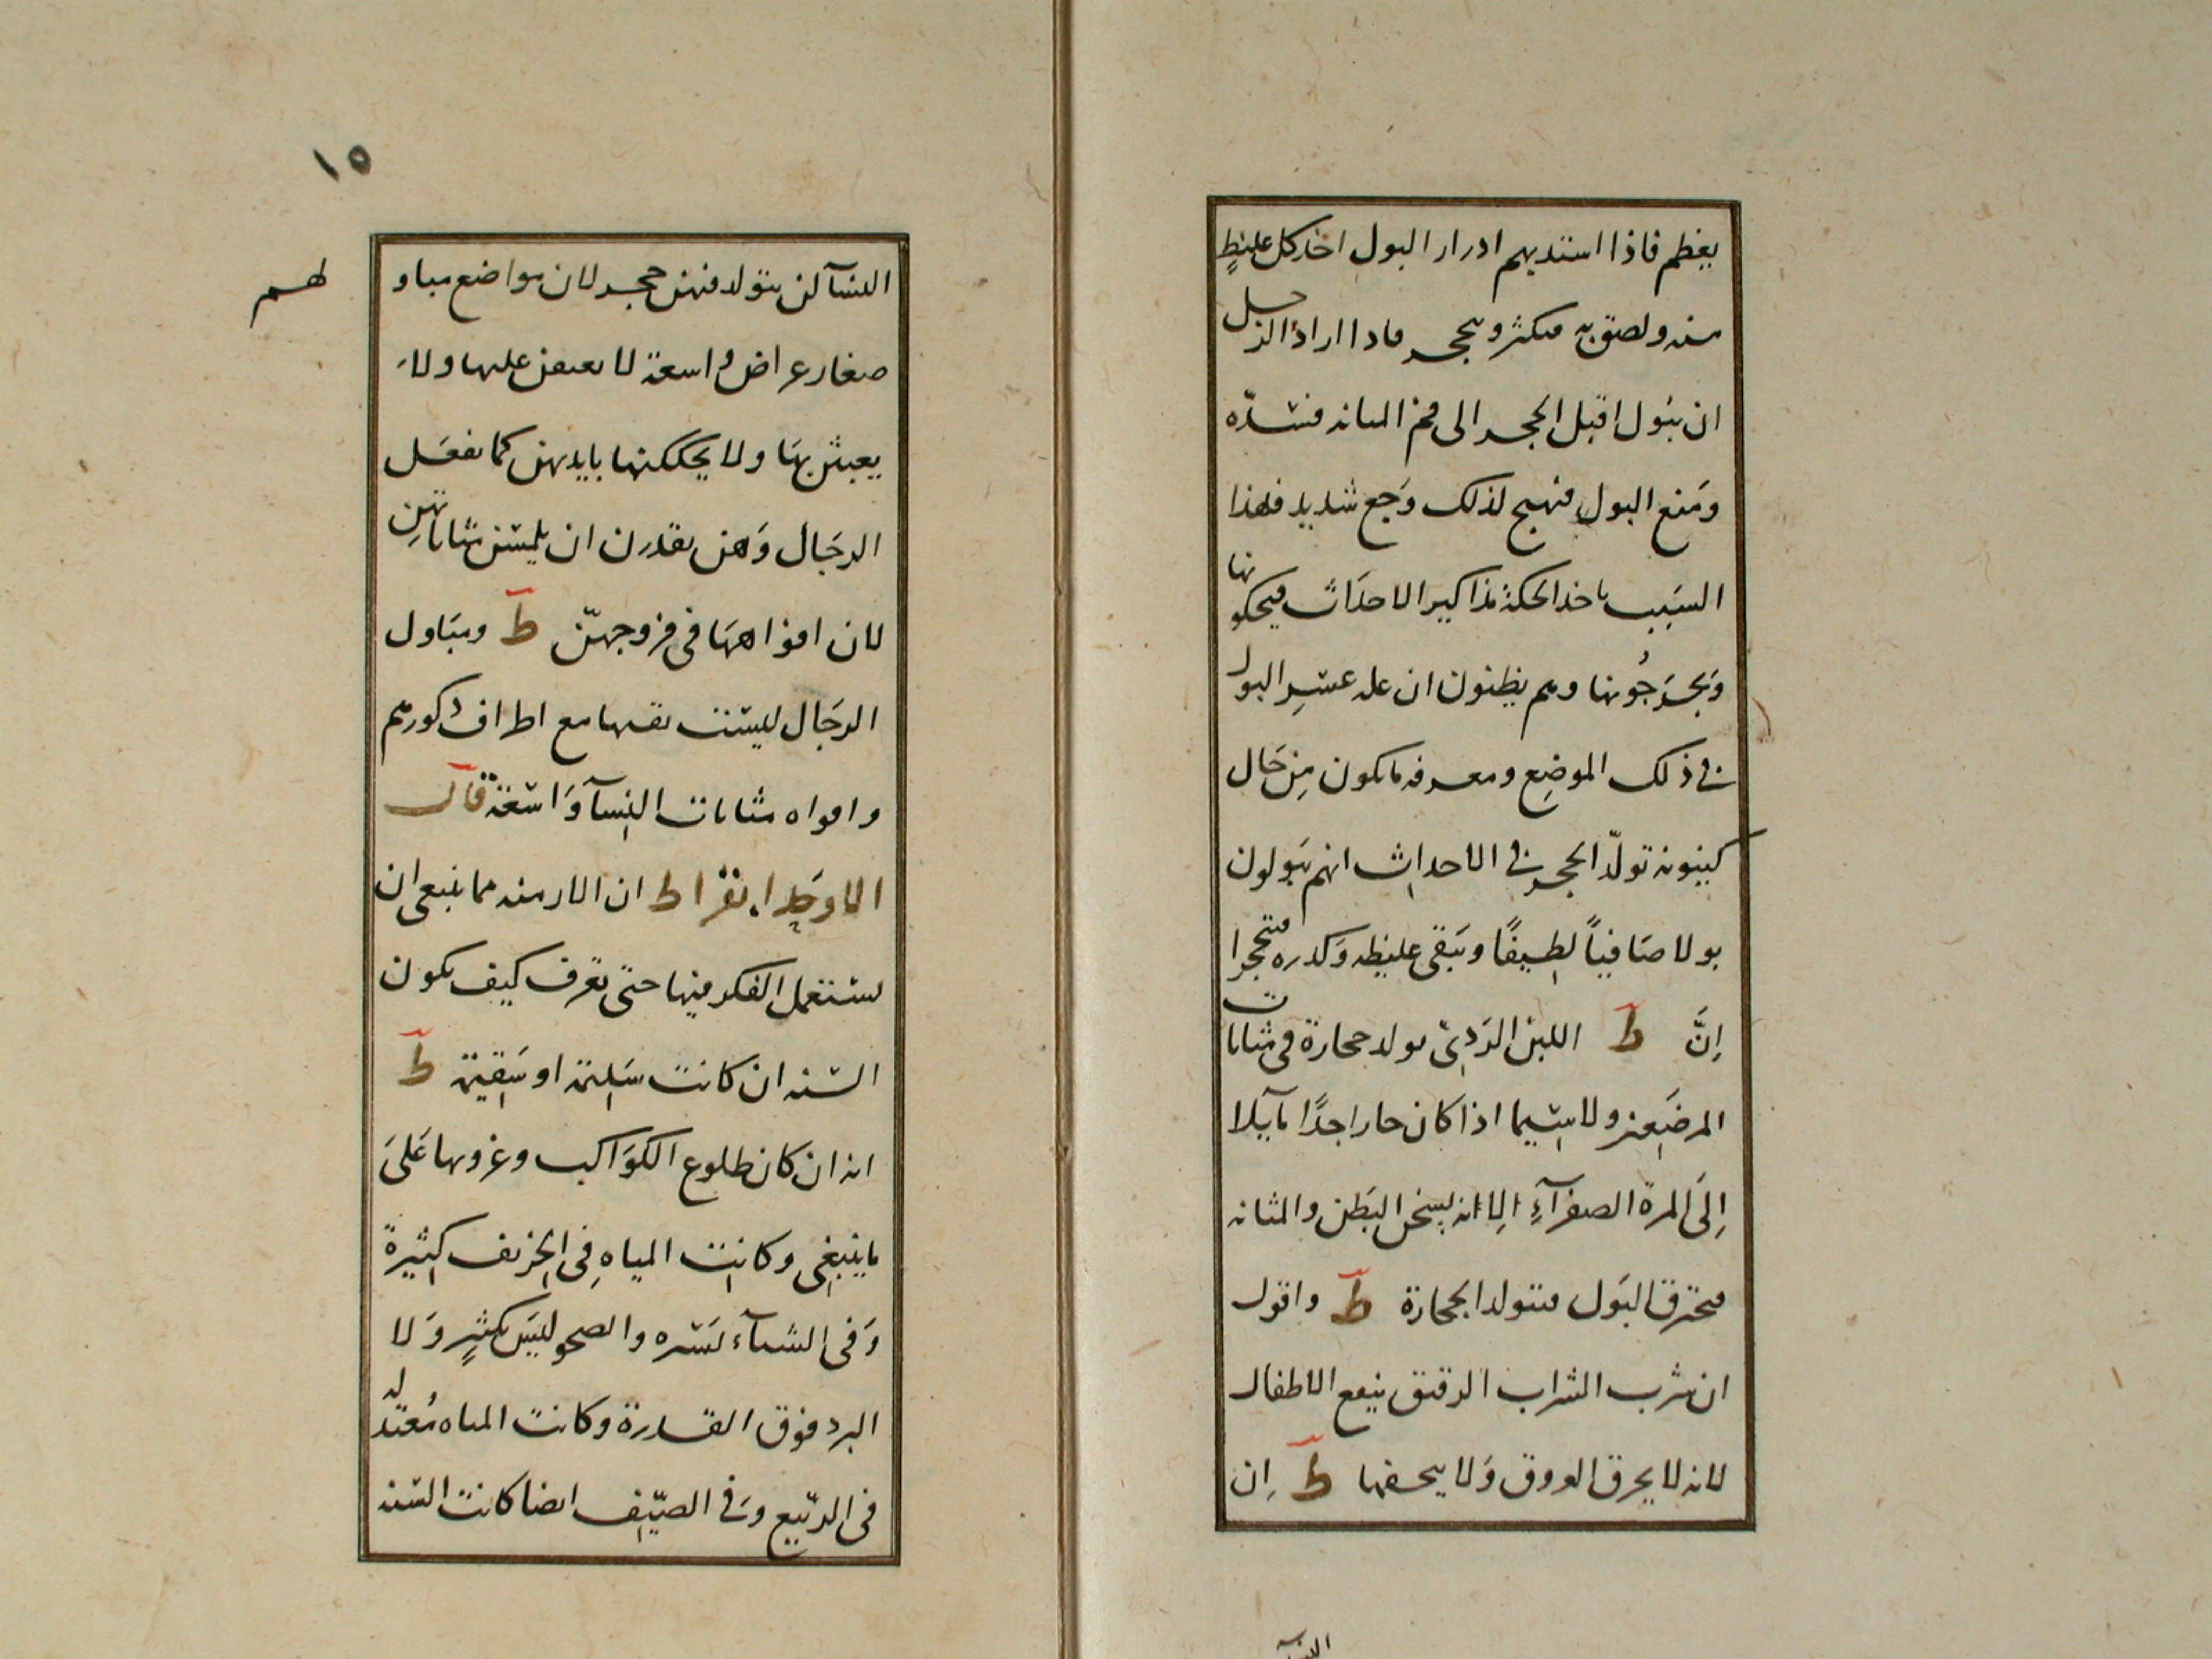 يعظم فاذا استديهم ادرار البول اخذ كل غليظٍ
منه ولصق به فيكثر ويتحجر فاذا اراد الرجل
ان يبول اقبل الحجر الى فم المثانه فسدّه
ومَنع البول فيهيج لذلك وَجع شديد فلهذا
السَبب ياخذ الحكة مذاكير الاحدَاث فيحكونها
وَيجرَحُونها وهم يظنون ان عله عسرِ البول
فى ذلك الموضِع ومعرفه ما يكون مِن حَال
كينونه تولّد الحجر فى الاحداث انهم يَبولون
بولا صَافياً لطيفًا ويَبقى غليظه وَكدره متحجرا
إنَّ ط اللبن الرَدِئ يولد حجارة فى مثانات
المرضَعين ولا سيما اذا كان حارا جدًا مآيلا
إلَى المرة الصفرآءِ الا انه يسخن البَطن والمثانه
فيحترق البَول فيتولد الحجارة ط واقول
ان شرب الشراب الرقيق ينفع الاطفال
لانه لا يحرق العروق وَلا يجففها ط اِن
النسآ
١٥
النسآ لن يتولد فيهن حجر لان مواضع مباو
لهم
صغار عراض واسعة لا يقبض عليها ولا
يعبثن بهَا ولا يحككنها بايديهن كما يفعَل
الرجَال وَهن يقدرن ان يلمسن مثاناتهنِ
لان افواهها فى فروجهنّ ط ومبَاول
الرجَال ليست بقـها مع اطراف ذكورهم
وافواه مثانات النسآ وَاسعة قال
الاوحَد ابقراط ان الازمنه مما ينبغى ان
يستعمل الفكر فيها حتى تعرف كيف يكون
السنه ان كانت سَليمة او سَقيمة ط
انه ان كان طلوع الكوَاكب وغروبها عَلىَ
ما ينبغِى وكانت المياهِ فِى الخريف كثيرة
وَفى الشتآء يَسيره والصحو ليسَ بكثيرٍ وَلا
البرد فوق القدرة وكانت المياه مُعتدله
فى الربّيع وَفى الصيّف ايضا كانت السنه